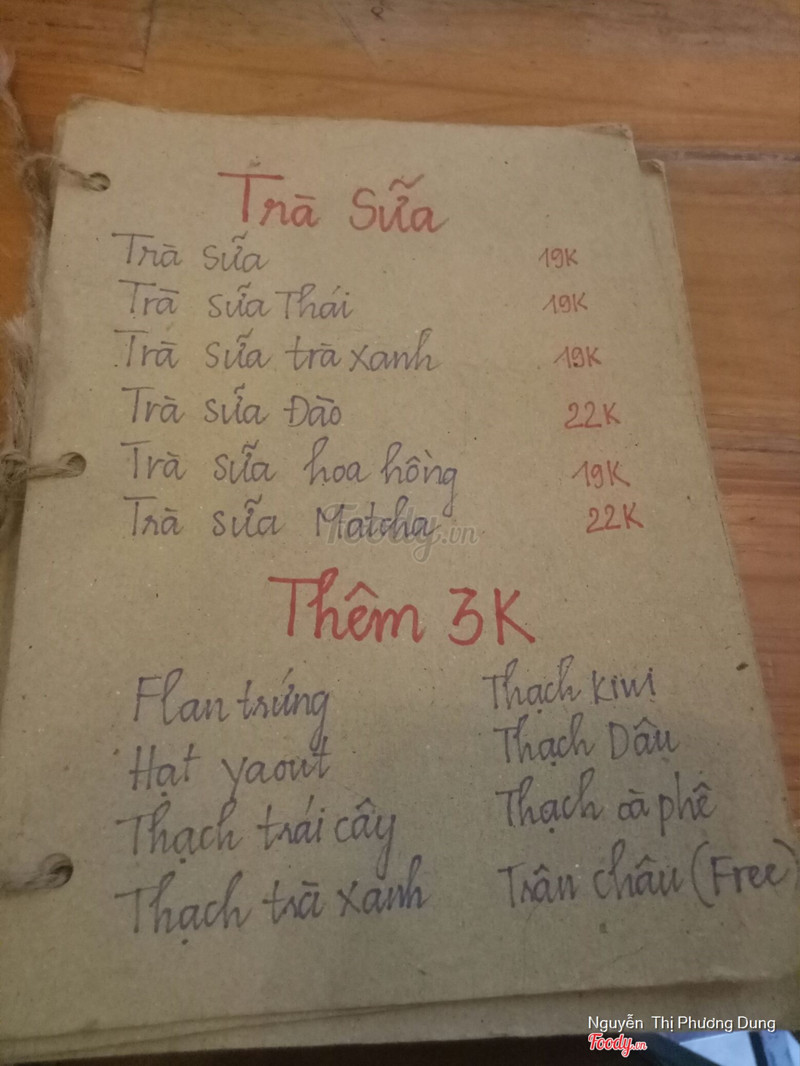 Trà Sữa
Trà sữa 19K
Trà sữa Thái 19K
Trà sữa trà xanh 19K
Trà sữa Đào 22K
Trà sữa hoa hồng 19K
Trà sữa Matcha 22K
Foody.vn
Thêm 3K
Flan trứng Thạch kiwi
Hạt yaout Thạch Dâu
Thạch trái cây Thạch cà phê
Thạch trà xanh Trân châu (Free)
Nguyễn Thị Phương Dung
Foody.vn